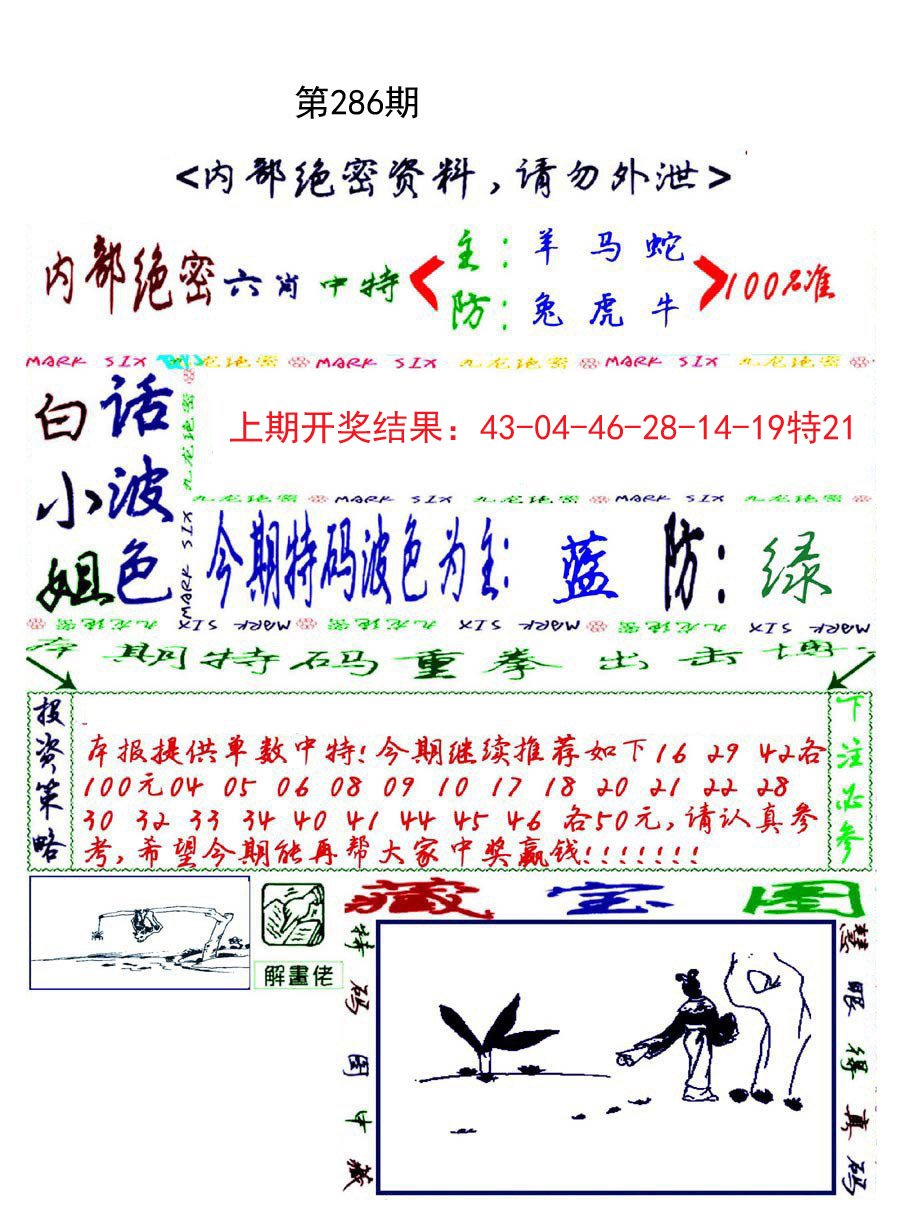 第286期
<内部绝密资料,请勿外泄>
内部绝密六肖中特
主:羊 马 蛇
防:兔 虎 牛
100%准
MARK SIX 九龙绝密 MARK SIX 九龙绝密 MARK SIX 九龙绝密
白话
小波
姐色
九龙绝密
MARK SIX
上期开奖结果：43-04-46-28-14-19特21
九龙绝密 MARK SIX 九龙绝密 MARK SIX 九龙绝密
今期特码波色为主:蓝 防:绿
九龙绝密 MARK SIX 九龙绝密 MARK SIX 九龙绝密 MARK SIX
本期特码重拳出击博
投资策略
本报提供单数中特!今期继续推荐如下16 29 42各
100元04 05 06 08 09 10 17 18 20 21 22 28
30 32 33 34 40 41 44 45 46 各50元,请认真参
考,希望今期能再帮大家中奖赢钱!!!!!!!
下注必参
解畫佬
藏宝图
特码图中藏
慧眼得真码